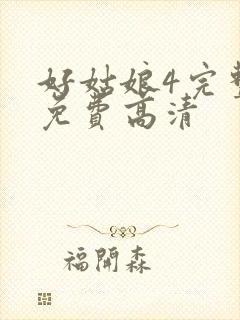 好姑娘4完整
免費高清
福開森